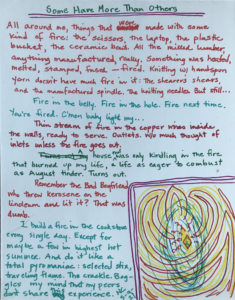 Some Have More Than Others
All around me, things that were made with some
kind of fire: the scissors, the laptop, the plastic
bucket, the ceramic bowl. All the milled lumber,
anything manufactured, really. Something was heated,
melted, stamped, fused – fired. Knitting w/ handspun
yarn doesn't have much fire in it: The shearer's shears,
and the manufactured spindle. The knitting needles. But still...
Fire in the belly. Fire in the hole. Fire next time,
You're fired. C'mon baby light my...
Thin stream of fire in the copper wires inside
the walls, ready to serve. Outlets. W/o much thought of
outlets unless the fire goes out.
A house was only kindling in the fire
that burned up my life, a life as easy to combust
as August tinder. Turns out.
Remember the Bad Boyfriend
who threw kerosene on the
linoleum and lit it? That was
dumb.
I build a fire in the cookstove
every single day. Except for
maybe a few in highest hot
summer. And do it like a
total pyromaniac: selected stix,
traveling flame. The crackle.
my mind that my peers
don't share experience.